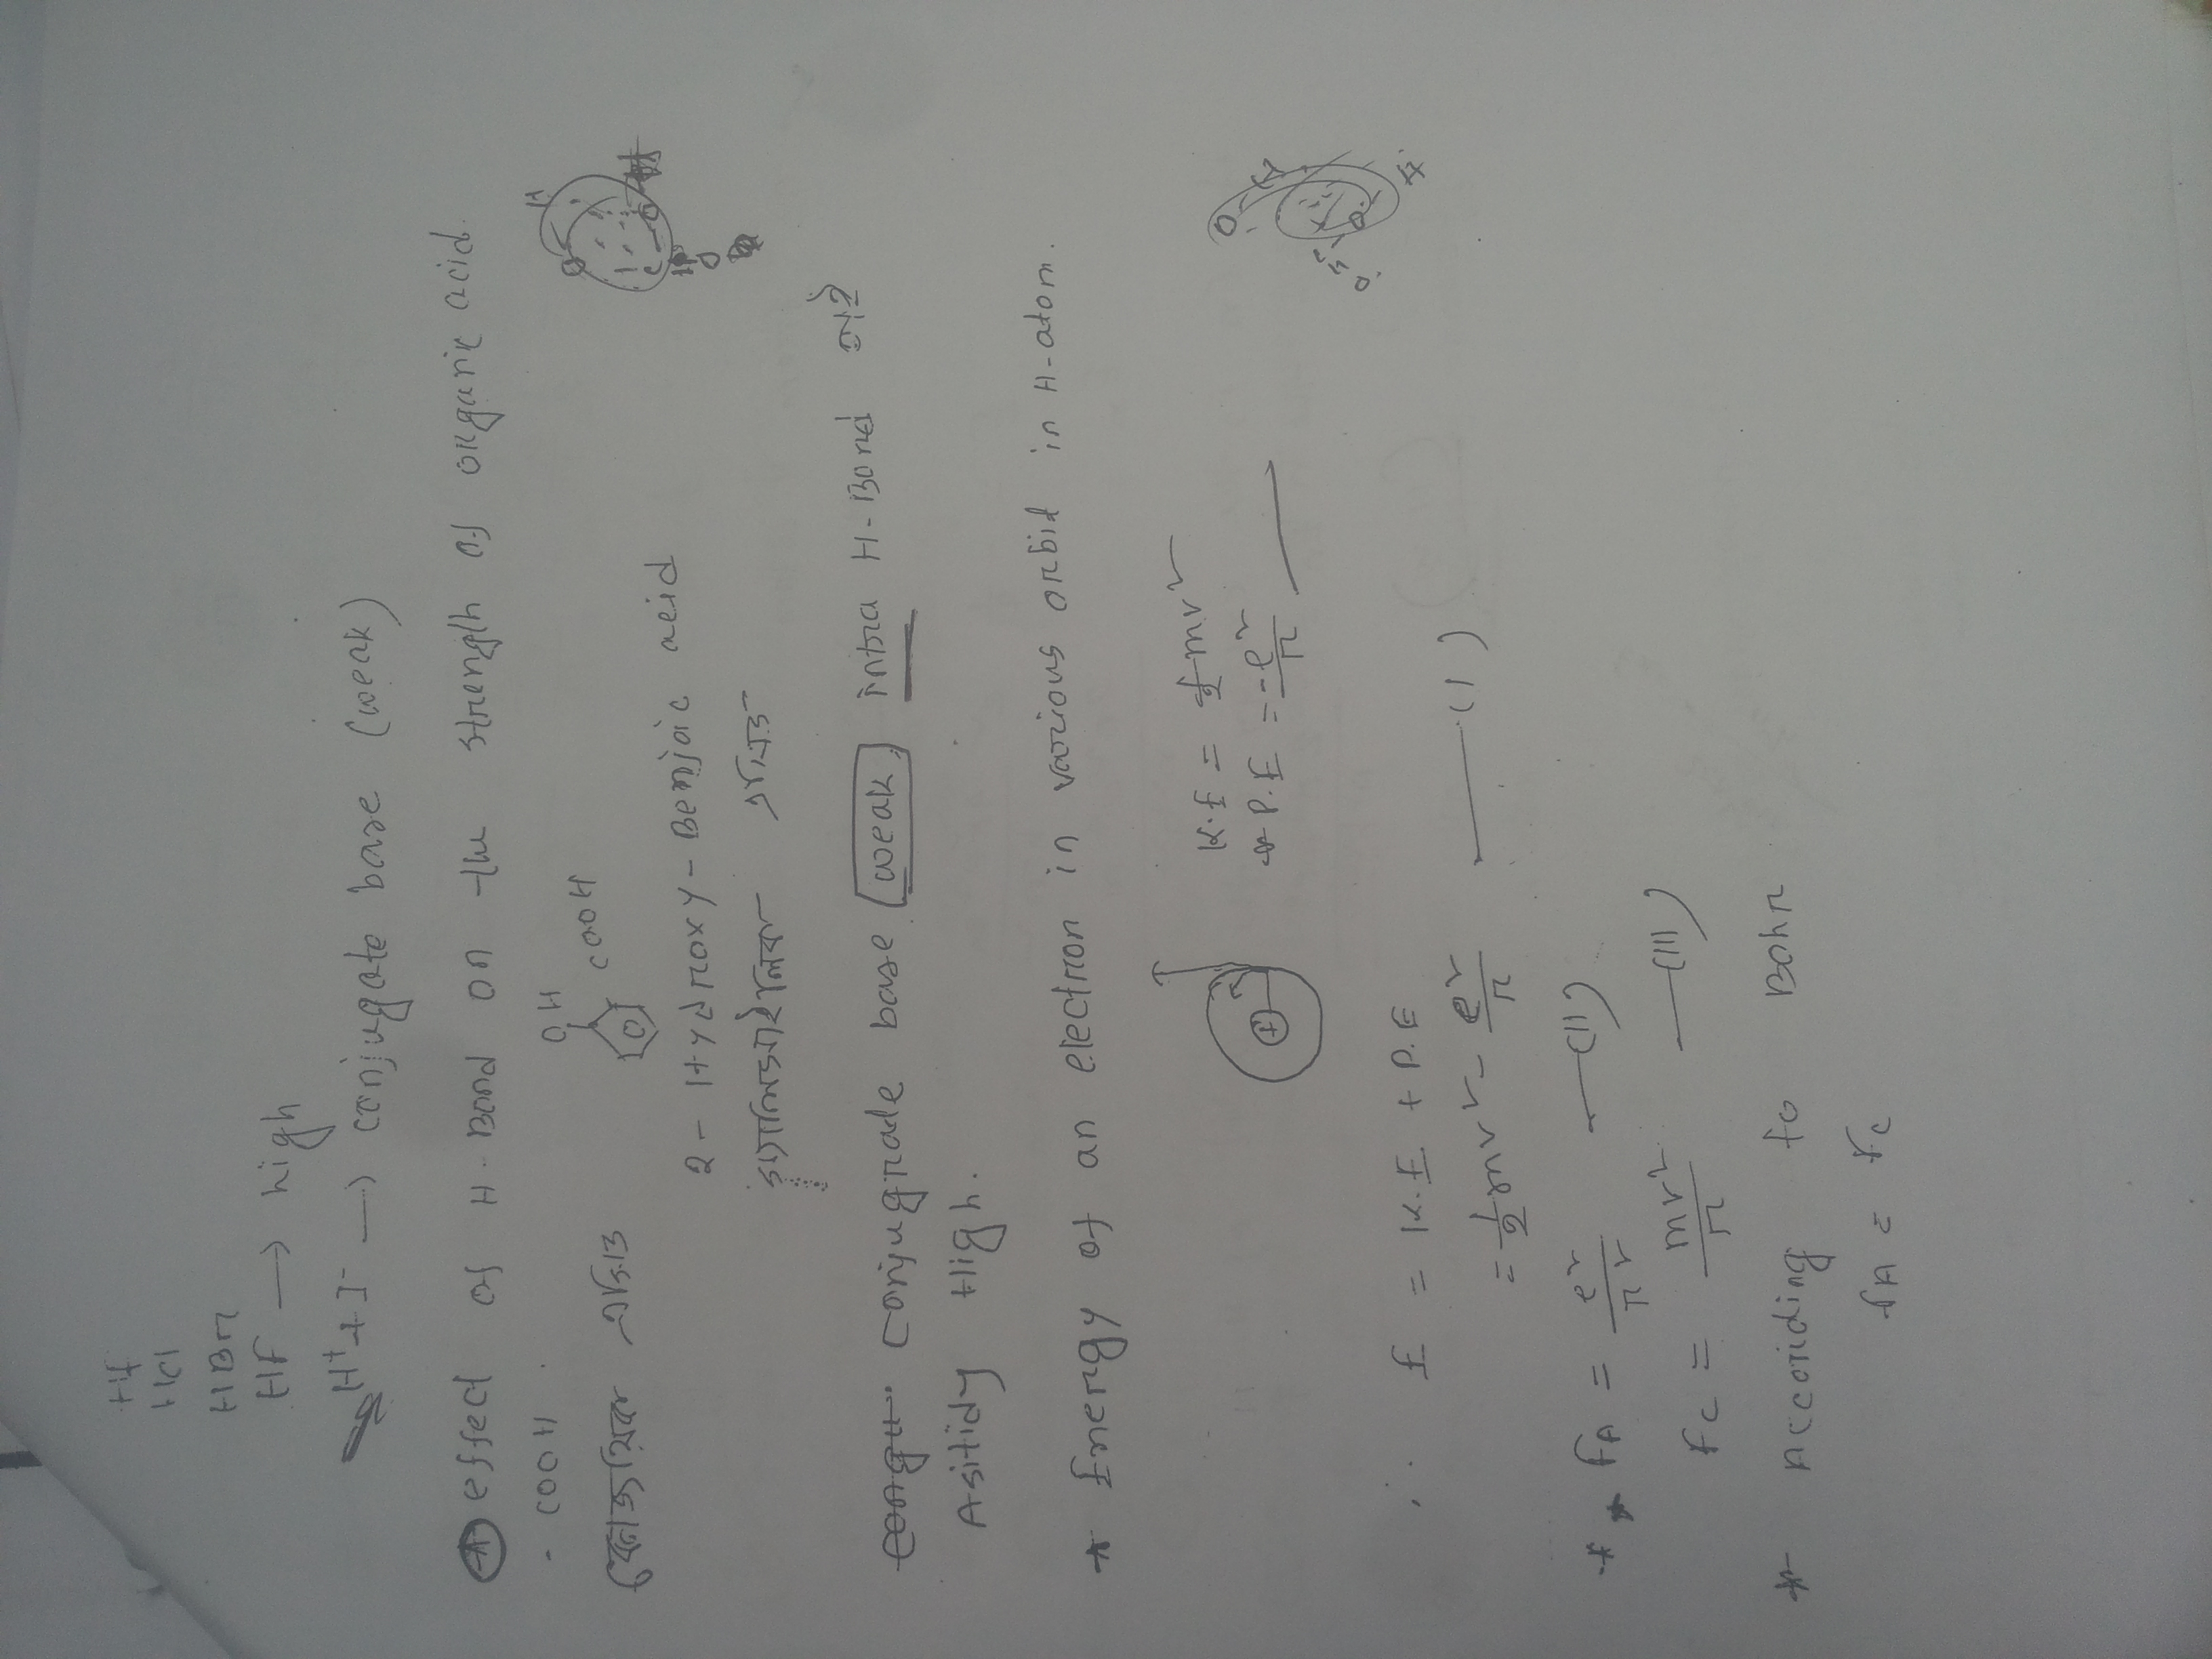 HF
HCl
HBr
HF → high
H⁺ + I⁻ → conjugate base (weak)
effect of H-Bond on the strength of organic acid
- COOH
OH
COOH
2-Hydroxy-Benjoic acid
conjugrade base (weak, intra H-Bond নাই)
Asitidy High.
* Energy of an electron in various orbid in H-atom.
K.E = ½mv²
P.E = -e²/r
∴ E = K.E + P.E
= ½mv² - e²/r —(I)
FA = e²/r² —(II)
Fc = mv²/r —(III)
* According to Bohr
FA = Fc